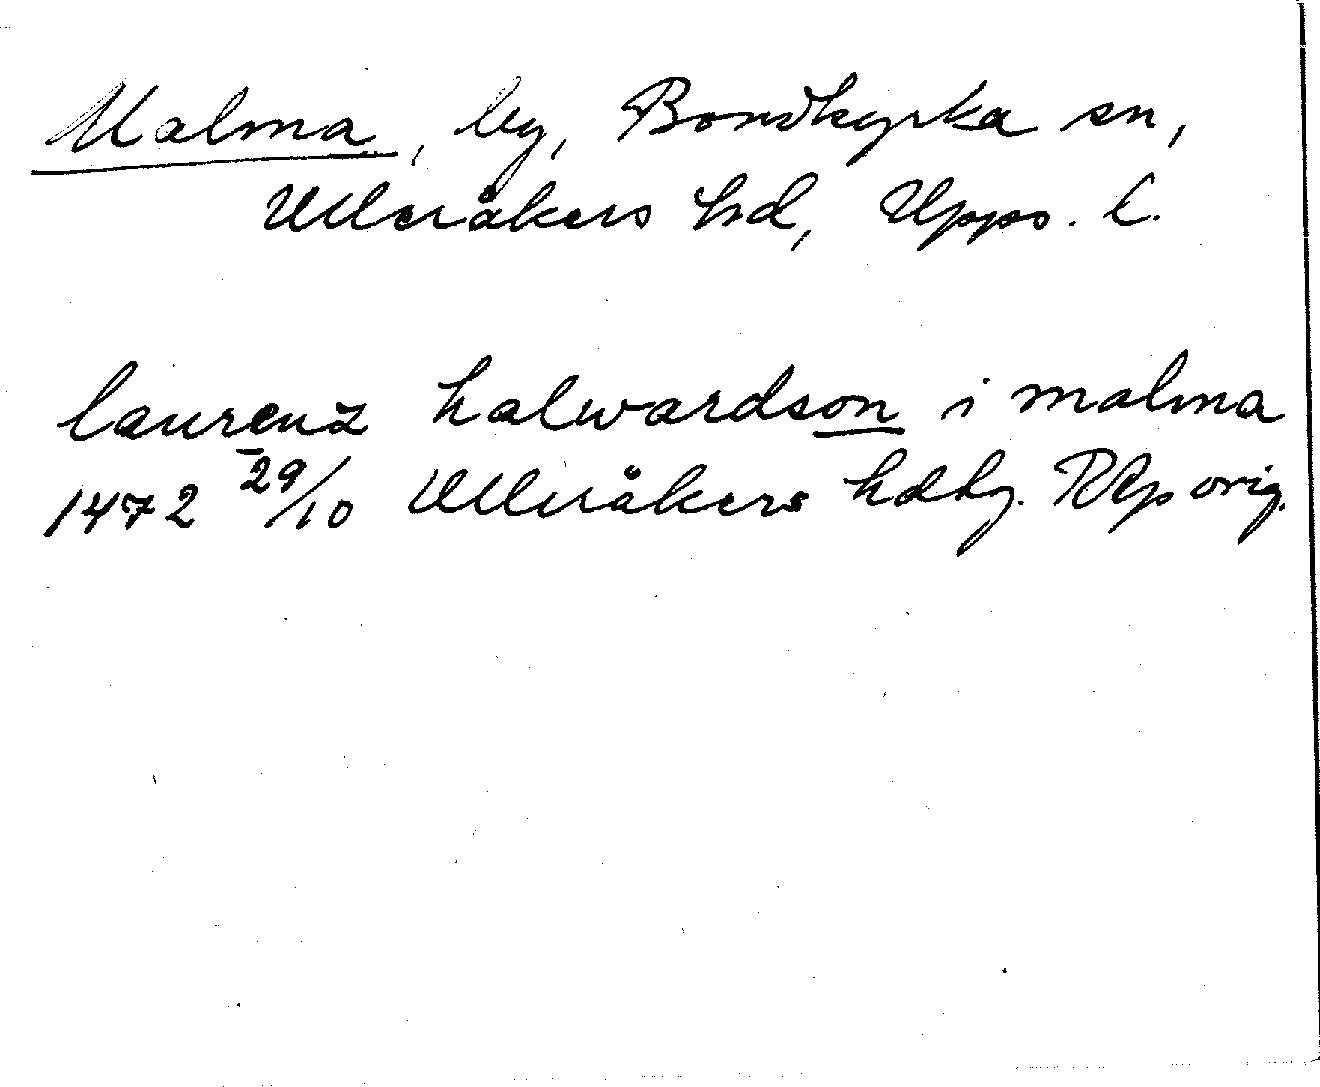 Malma, by, Bondkyrka sn,
Ulleråkers hd, Upps. l.
laurenz halwardson i malma
1472 29/10 Ulleråkers hdbg. RAp orig.